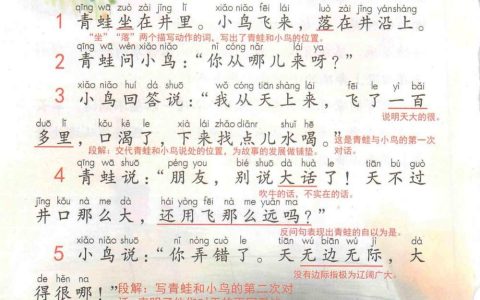 qīng wā zuò zài jǐng lǐ xiǎo niǎo fēi lái luò zài jǐng yán shàng
1 青蛙坐在井里。小鸟飞来，落在井沿上。
“坐”“落”两个描写动作的词，写出了青蛙和小鸟的位置。
qīng wā wèn xiǎo niǎo nǐ cóng nǎr lái ya
2 青蛙问小鸟：“你从哪儿来呀？”
xiǎo niǎo huí dá shuō wǒ cóng tiān shàng lái fēi le yì bǎi
3 小鸟回答说：“我从天上来，飞了一百
说明天大的很。
duō lǐ kǒu kě le xià lái zhǎo diǎnr shuǐ hē
多里，口渴了，下来找点儿水喝。”
这是青蛙与小鸟的第一次
段解：交代青蛙和小鸟说处的位置，为故事的发展做铺垫。
对话。
qīng wā shuō péng you bié shuō dà huà le tiān bú guò
4 青蛙说：“朋友，别说大话了！天不过
吹牛的话，不实在的话。
jǐng kǒu nà me dà hái yòng fēi nà me yuǎn ma
井口那么大，还用飞那么远吗？”
反问句表现出青蛙的自以为是。
xiǎo niǎo shuō nǐ nòng cuò le tiān wú biān wú jì dà
5 小鸟说：“你弄错了。天无边无际，大
没有边际指极为辽阔广大。
de hěn na
得很哪！”
段解：写青蛙和小鸟的第二次对